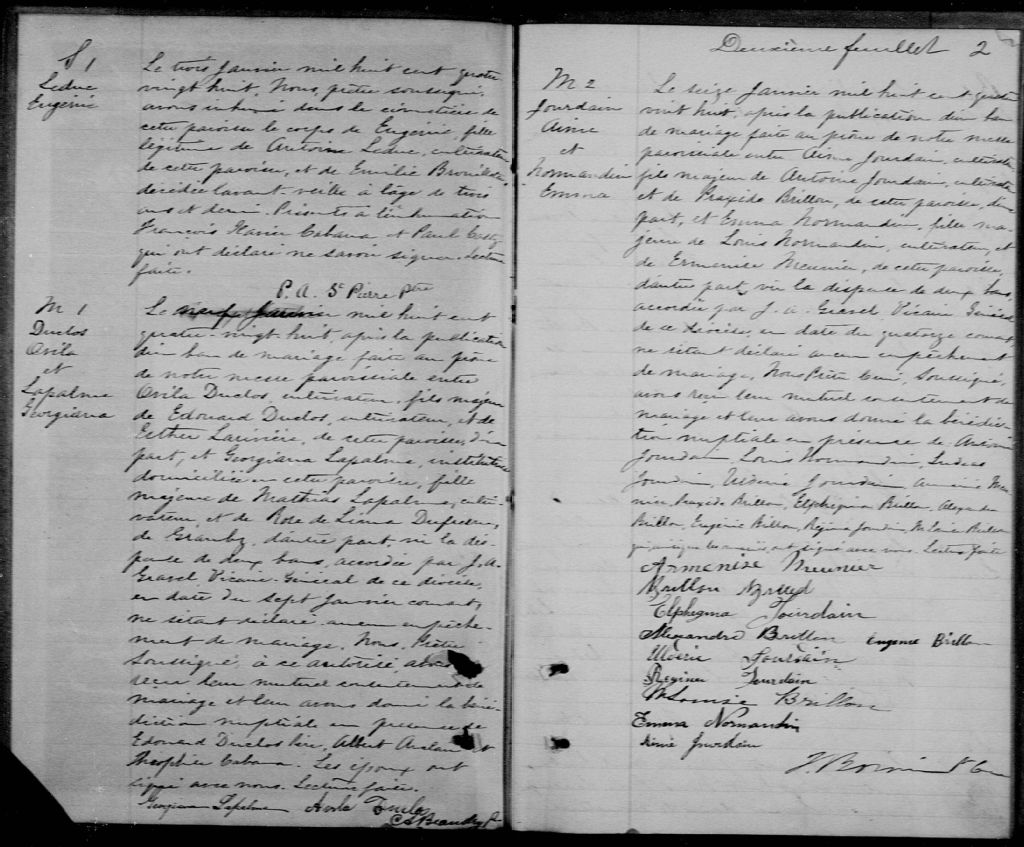 S 1
Leduc
Eugénie
Le trois Janvier mil huit cent quatre
vingt huit, Nous, prêtre soussigné,
avons inhumé dans le cimetière de
cette paroisse le corps de Eugénie, fille
légitime de Antoine Leduc, cultivateur
de cette paroisse, et de Emilie Brouillette
décédée l'avant veille à l'âge de trois
ans et demi. Présents à l'inhumation
François Xavier Cabana et Paul
qui ont déclaré ne savoir signer. Lecture
faite.
P. A. St Pierre Ptre
M 1
Duclos
Ovila
et
Lapalme
Georgiana
Le neuf Janvier mil huit cent
quatre-vingt huit, après la publication
d'un ban de mariage faite au prône
de notre messe paroissiale entre
Ovila Duclos, cultivateur, fils majeur
de Edouard Duclos, cultivateur, et de
Esther Larivière, de cette paroisse, d'une
part, et Georgiana Lapalme, institutrice
domiciliée en cette paroisse, fille
majeure de Mathias Lapalme, culti-
vateur, et de Rose de Lima Dufresne,
de Granby, d'autre part, vu la dis-
pense de deux bans, accordée par J. A.
Gravel Vicaire-Général de ce diocèse,
en date du sept Janvier courant,
ne s'étant déclaré aucun empêche-
ment de mariage, Nous, Prêtre
soussigné, à ce autorisé avons
reçu leur mutuel consentement de
mariage et leur avons donné la béné-
diction nuptiale en présence de
Edouard Duclos père, Albert et
Théophile Cabana. Les époux ont
signé avec nous. Lecture faite.
Georgiana Lapalme Ovila Duclos
Beaudry Ptre
Deuxième feuillet 2
M 2
Jourdain
Aimé
et
Normandin
Emma
Le seize Janvier mil huit cent quatre
vingt huit, après la publication d'un ban
de mariage faite au prône de notre messe
paroissiale entre Aimé Jourdain, cultivateur
fils majeur de Antoine Jourdain, cultivateur
et de Praxède Brillon, de cette paroisse, d'une
part, et Emma Normandin, fille ma-
jeure de Louis Normandin, cultivateur, et
de Ermenise Meunier, de cette paroisse,
d'autre part, vu la dispense de deux bans,
accordée par J. A. Gravel Vicaire Général
de ce diocèse, en date du quatorze courant,
ne s'étant déclaré aucun empêchement
de mariage, Nous Prêtre Curé, soussigné,
avons reçu leur mutuel consentement de
mariage et leur avons donné la bénédic-
tion nuptiale en présence de Antoine
Jourdain, Louis Normandin,
Jourdain, Jourdain, Meu-
nier, Praxède Brillon, Elphegina Brillon, Alexandre
Brillon, Eugénie Brillon, Régina Jourdain, M. Louise Brillon
qui, ainsi que les mariés, ont signé avec nous. Lecture faite
Armenise Meunier
Brillon
Elphegina Jourdain
Alexandre Brillon Eugenie Brillon
Jourdain
Regina Jourdain
M Louise Brillon
Emma Normandin
Aimé Jourdain